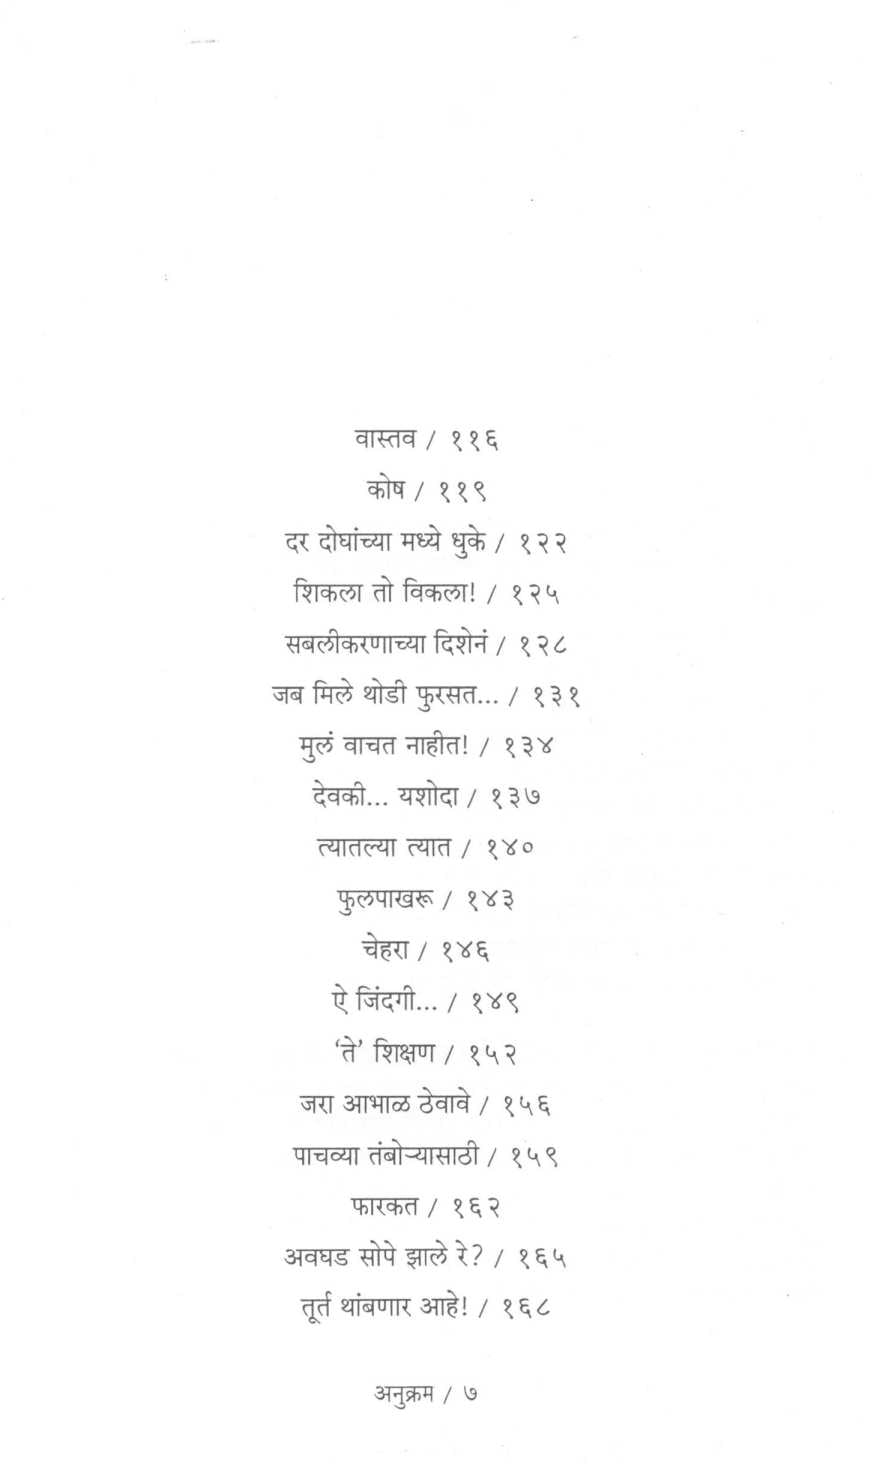 वास्तव / ११६
कोष / ११९
दर दोघांच्या मध्ये धुके / १२२
शिकला तो विकला! / १२५
सबलीकरणाच्या दिशेनं / १२८
जब मिले थोडी फुरसत... / १३१
मुलं वाचत नाहीत! / १३४
देवकी... यशोदा / १३७
त्यातल्या त्यात / १४०
फुलपाखरू / १४३
चेहरा / १४६
ऐ जिंदगी... / १४९
‘ते’ शिक्षण / १५२
जरा आभाळ ठेवावे / १५६
पाचव्या तंबोऱ्यासाठी / १५९
फारकत / १६२
अवघड सोपे झाले रे? / १६५
तूर्त थांबणार आहे! / १६८
अनुक्रम / ७